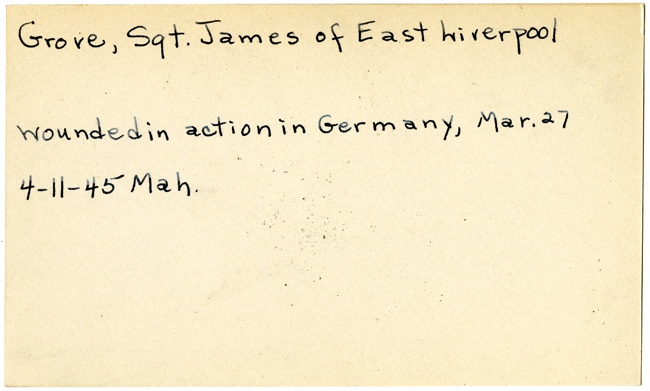 Grove, Sgt. James of East Liverpool
wounded in action in Germany, Mar. 27
4-11-45 Mah.